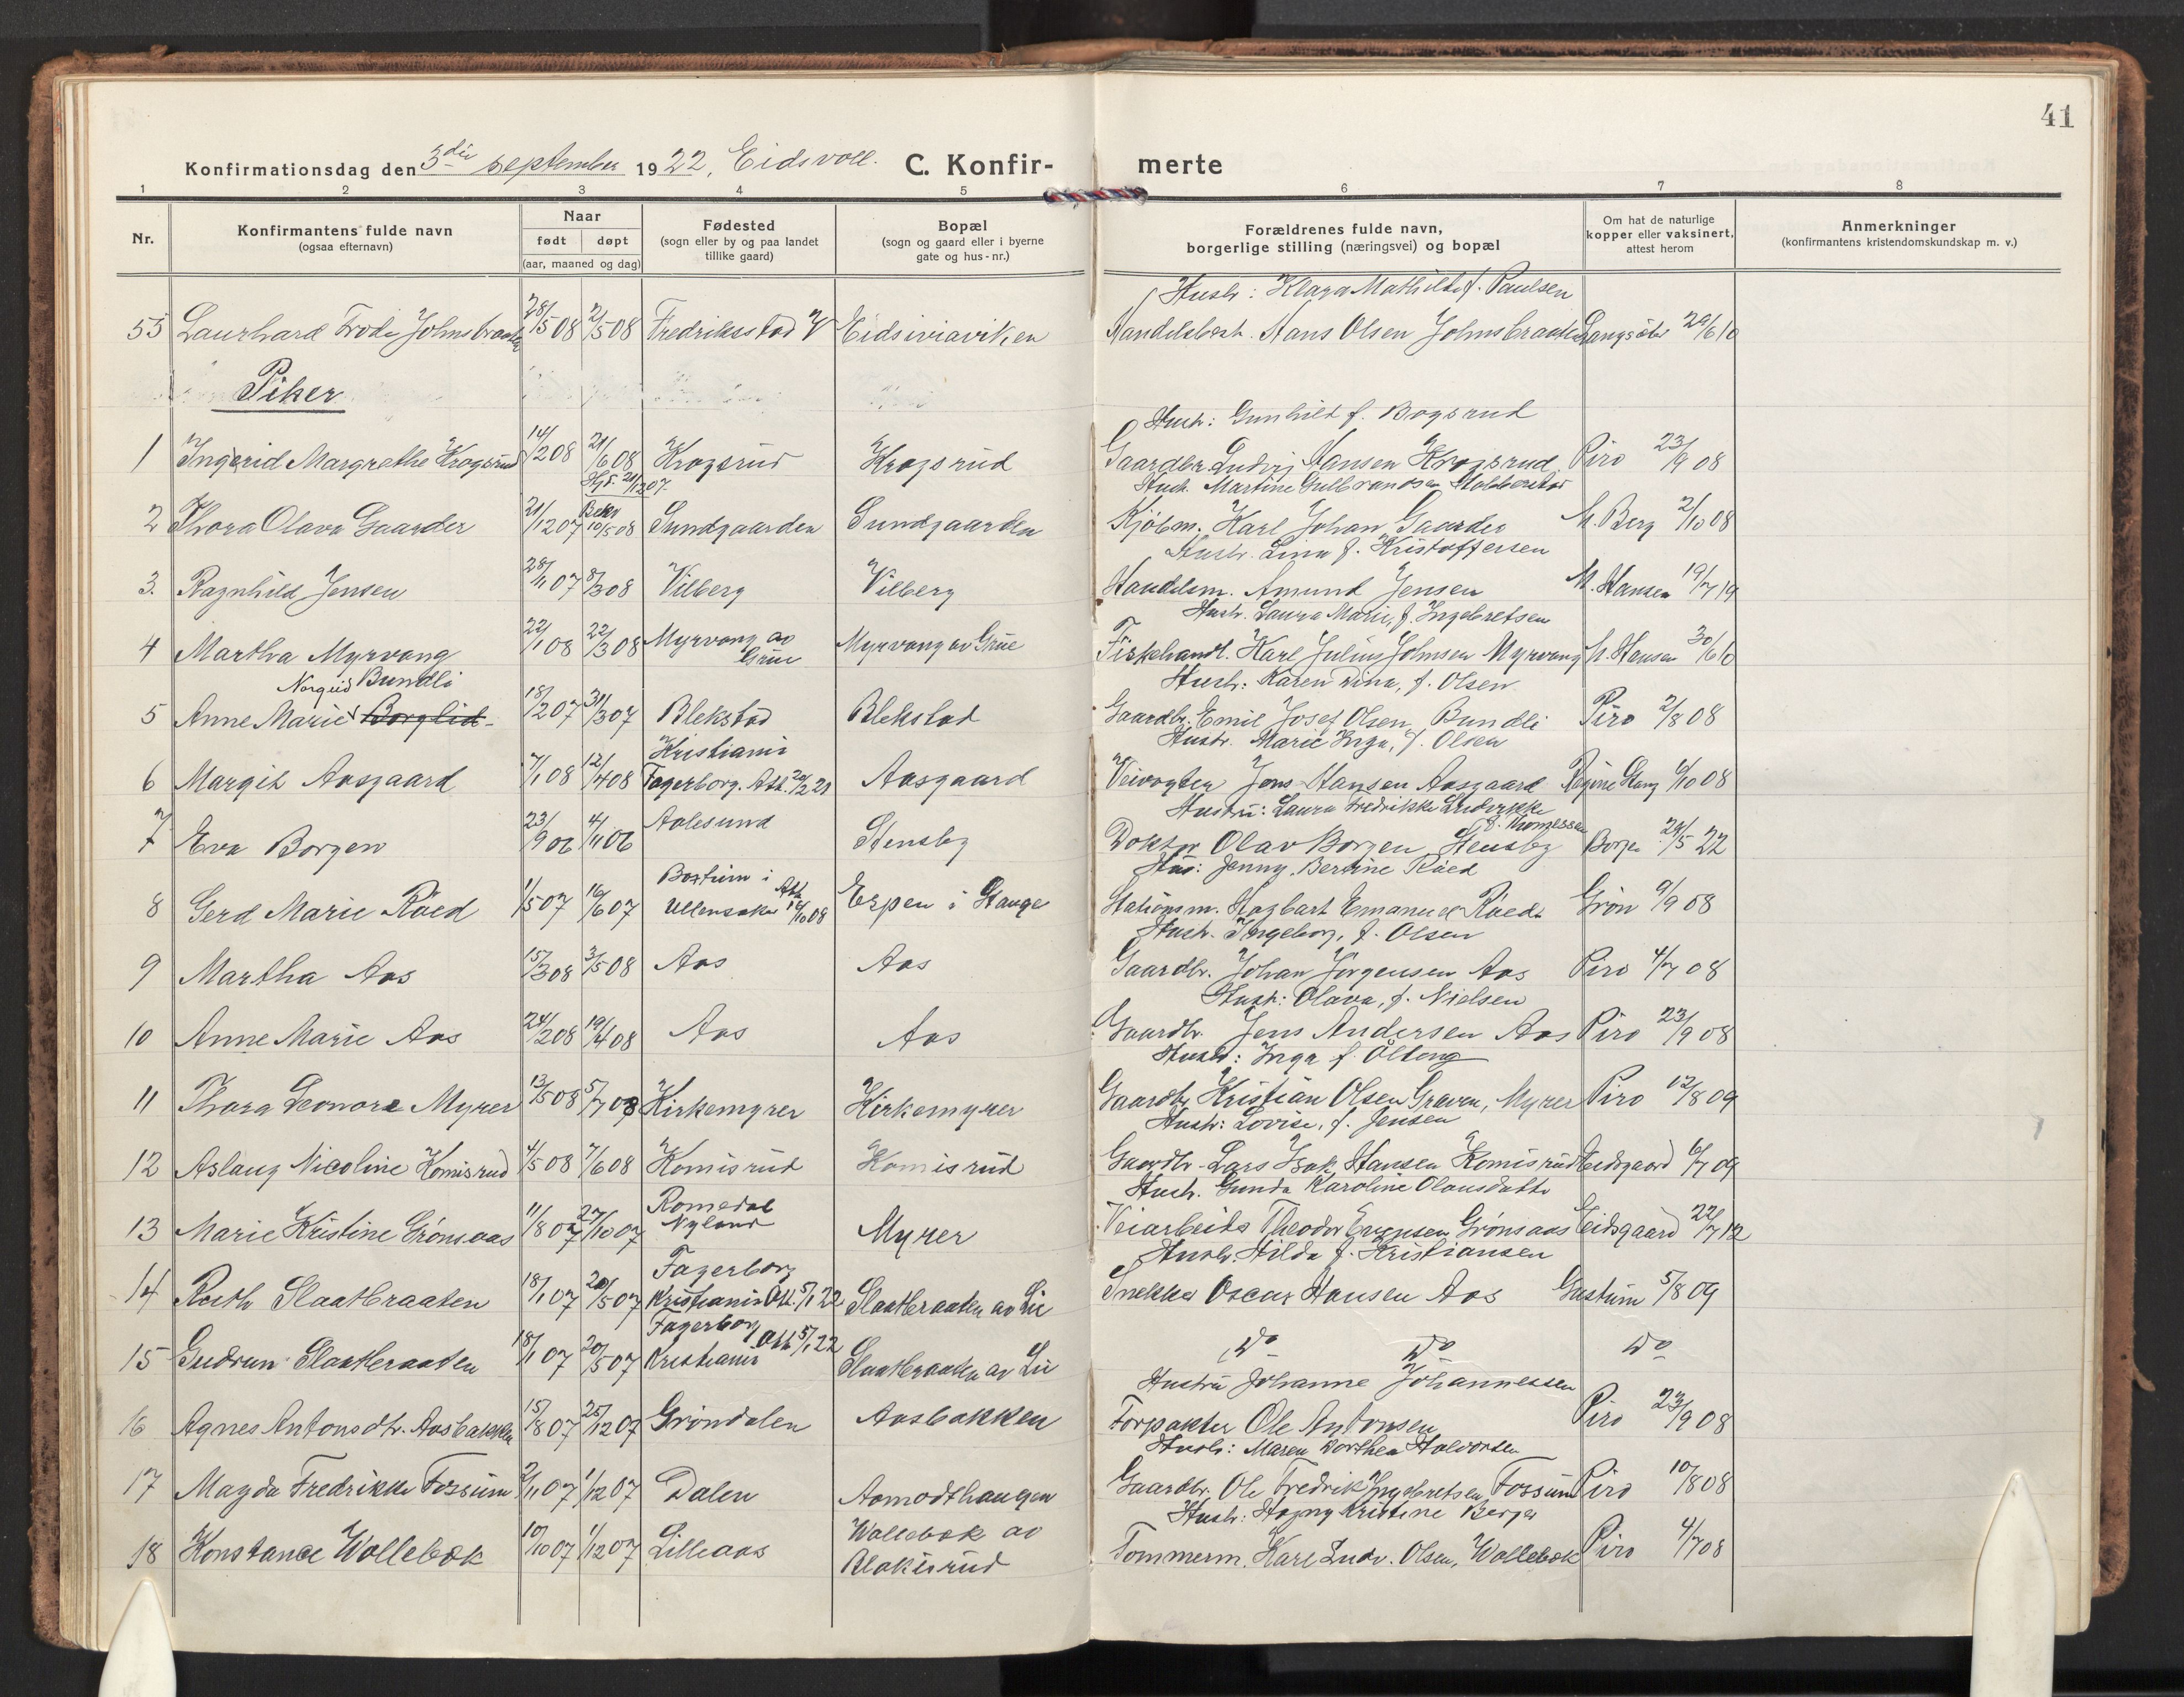 41
Konfirmationsdag den 3die september 1922, Eidsvoll. C. Konfir- merte
1 2 3 4 5 6 7 8
Nr.
Konfirmantens fulde navn
(ogsaa efternavn)
Naar
født døpt
(aar, maaned og dag)
Fødested
(sogn eller by og paa landet
tillike gaard)
Bopæl
(sogn og gaard eller i byerne
gate og hus-nr.)
Forældrenes fulde navn,
borgerlige stilling (næringsvei) og bopæl
Om hat de naturlige
kopper eller vaksinert,
attest herom
Anmerkninger
(konfirmantens kristendomskundskap m. v.)
Hustr: Klara Mathilde f. Paulsen
55 Frode Johnsbraaten 28/5 08 Fredriksstad V Hans Olsen Johnsbraaten 29/6 10
Piker
Hustr: Gunhild f. Bogsrud
1 Ingerid Margrethe Krogsrud 14/2 08 21/6 08 Krogsrud Krogsrud Gaardbr. Ludvig Hansen Krogsrud Piro 23/9 08
Hustr. Martine Gulbrandsen
2 Thora Olava Gaarder 21/12 07 10/5 08 Sundgaarden Sundgaarden Kjøbm. Karl Johan Gaarder M. Berg 2/10 08
Hustr. Lina f. Kristoffersen
3. Ragnhild Jensen 28/11 07 8/3 08 Vilberg Vilberg Handelsm. Amund Jensen M. Hansen 19/7 19
Hustr. Laura Marie, f. Ingebretsen
4 Martha Myrvang 22/1 08 22/3 08 Myrvang av Grue Myrvang av Grue Fiskehandl. Karl Julius Johnsen Myrvang M. Hansen 30/6 10
Bundli
Hustr: Karen Dina, f. Olsen
5 Anne Marie Borglid 18/2 07 31/3 07 Blekstad Blekstad Gaardbr. Emil Josef Olsen Bundli Piro 2/8 08
Kristiania
Hustr. Marie Inga, f. Olsen
6 Margit Aasgaard 7/1 08 12/4 08 Fagerborg. Att. 20/2 21 Aasgaard Veivogter Jens Hansen Aasgaard 6/10 08
Hustru: Laura Fredrikke Ludvikke
f. Thomessen
7 Eva Borgen 23/9 06 4/11 06 Aalesund Stensby Doktor Olav Borgen, Stensby Borgen 29/5 22
Hus: Jenny Bertine Råed
8 Gerd Marie Råed 1/5 07 16/6 07 Ullensaker Att. 14/10 08 Espen i Stange Stationsm. Hagbart Emanuel Råed Grøn 9/9 08
Hustr. Ingeborg, f. Olsen
9 Martha Aas 15/3 08 3/5 08 Aas Aas Gaardbr. Johan Jørgensen Aas Piro 4/7 08
Hustr: Olava, f. Nielsen
10 Anne Marie Aas 24/2 08 19/4 08 Aas Aas Gaardbr. Jens Andersen Aas Piro 23/9 08
Hustr: Inga f.
11 Thora Leonore Myrer 13/5 08 5/7 08 Kirkemyrer Kirkemyrer Gaardbr. Kristian Olsen Graven, Myrer Piro 12/8 09
Hustr: Lovise, f. Jensen
12 Aslaug Nicoline Komisrud 4/5 08 7/6 08 Komisrud Komisrud Gaardbr. Lars Isak Hansen Komisrud Eidsgaard 6/7 09
Hustr. Gunda Karoline Olausdatter
13 Marie Kristine Grønsaas 11/8 07 27/10 07 Romedal Nyland Myrer Veiarbeider Theodor Evensen Grønsaas Eidsgaard 22/7 12
Hustr. Hilda f. Kristiansen
14 Ruth Slaatbraaten 18/1 07 20/5 07 Fagerborg Kristiania Att. 5/1 22 Slaatbraaten av Lie Snekker Oscar Hansen Aas Gustum 5/8 09
15 Gudrun Slaatbraaten 18/1 07 20/5 07 Fagerborg Kristiania Att 5/1 22 Slaatbraaten av Lie Do Do Do
Hustru Johanne Johannessen
16 Agnes Antonsdtr. Aasbakken 15/8 07 25/12 07 Grøndalen Aasbakken Forpakter Ole Antonsen Piro 23/9 08
Hustr: Maren Dorthea Halvorsen
17 Magda Fredrikke Fossum 2/11 07 1/12 07 Dalen Aamodthaugen Gaardbr. Ole Fredrik Ingebretsen Fossum Piro 10/8 08
Hustr: Hagny Kristine Berger
18 Konstance Wollebæk 10/10 07 1/12 07 Lilleaas Wollebæk av Blakisrud Tømmerm. Karl Ludv. Olsen, Wollebæk Piro 4/7 08